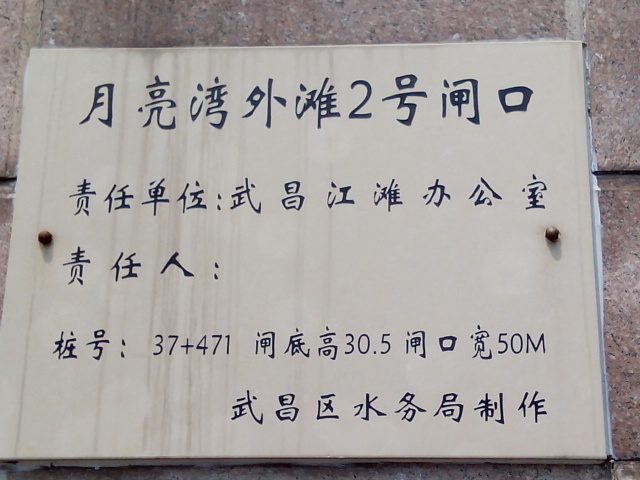 月亮湾外滩2号闸口
责任单位:武昌江滩办公室
责任人：
桩号： 37+471 闸底高30.5 闸口宽50M
武昌区水务局制作